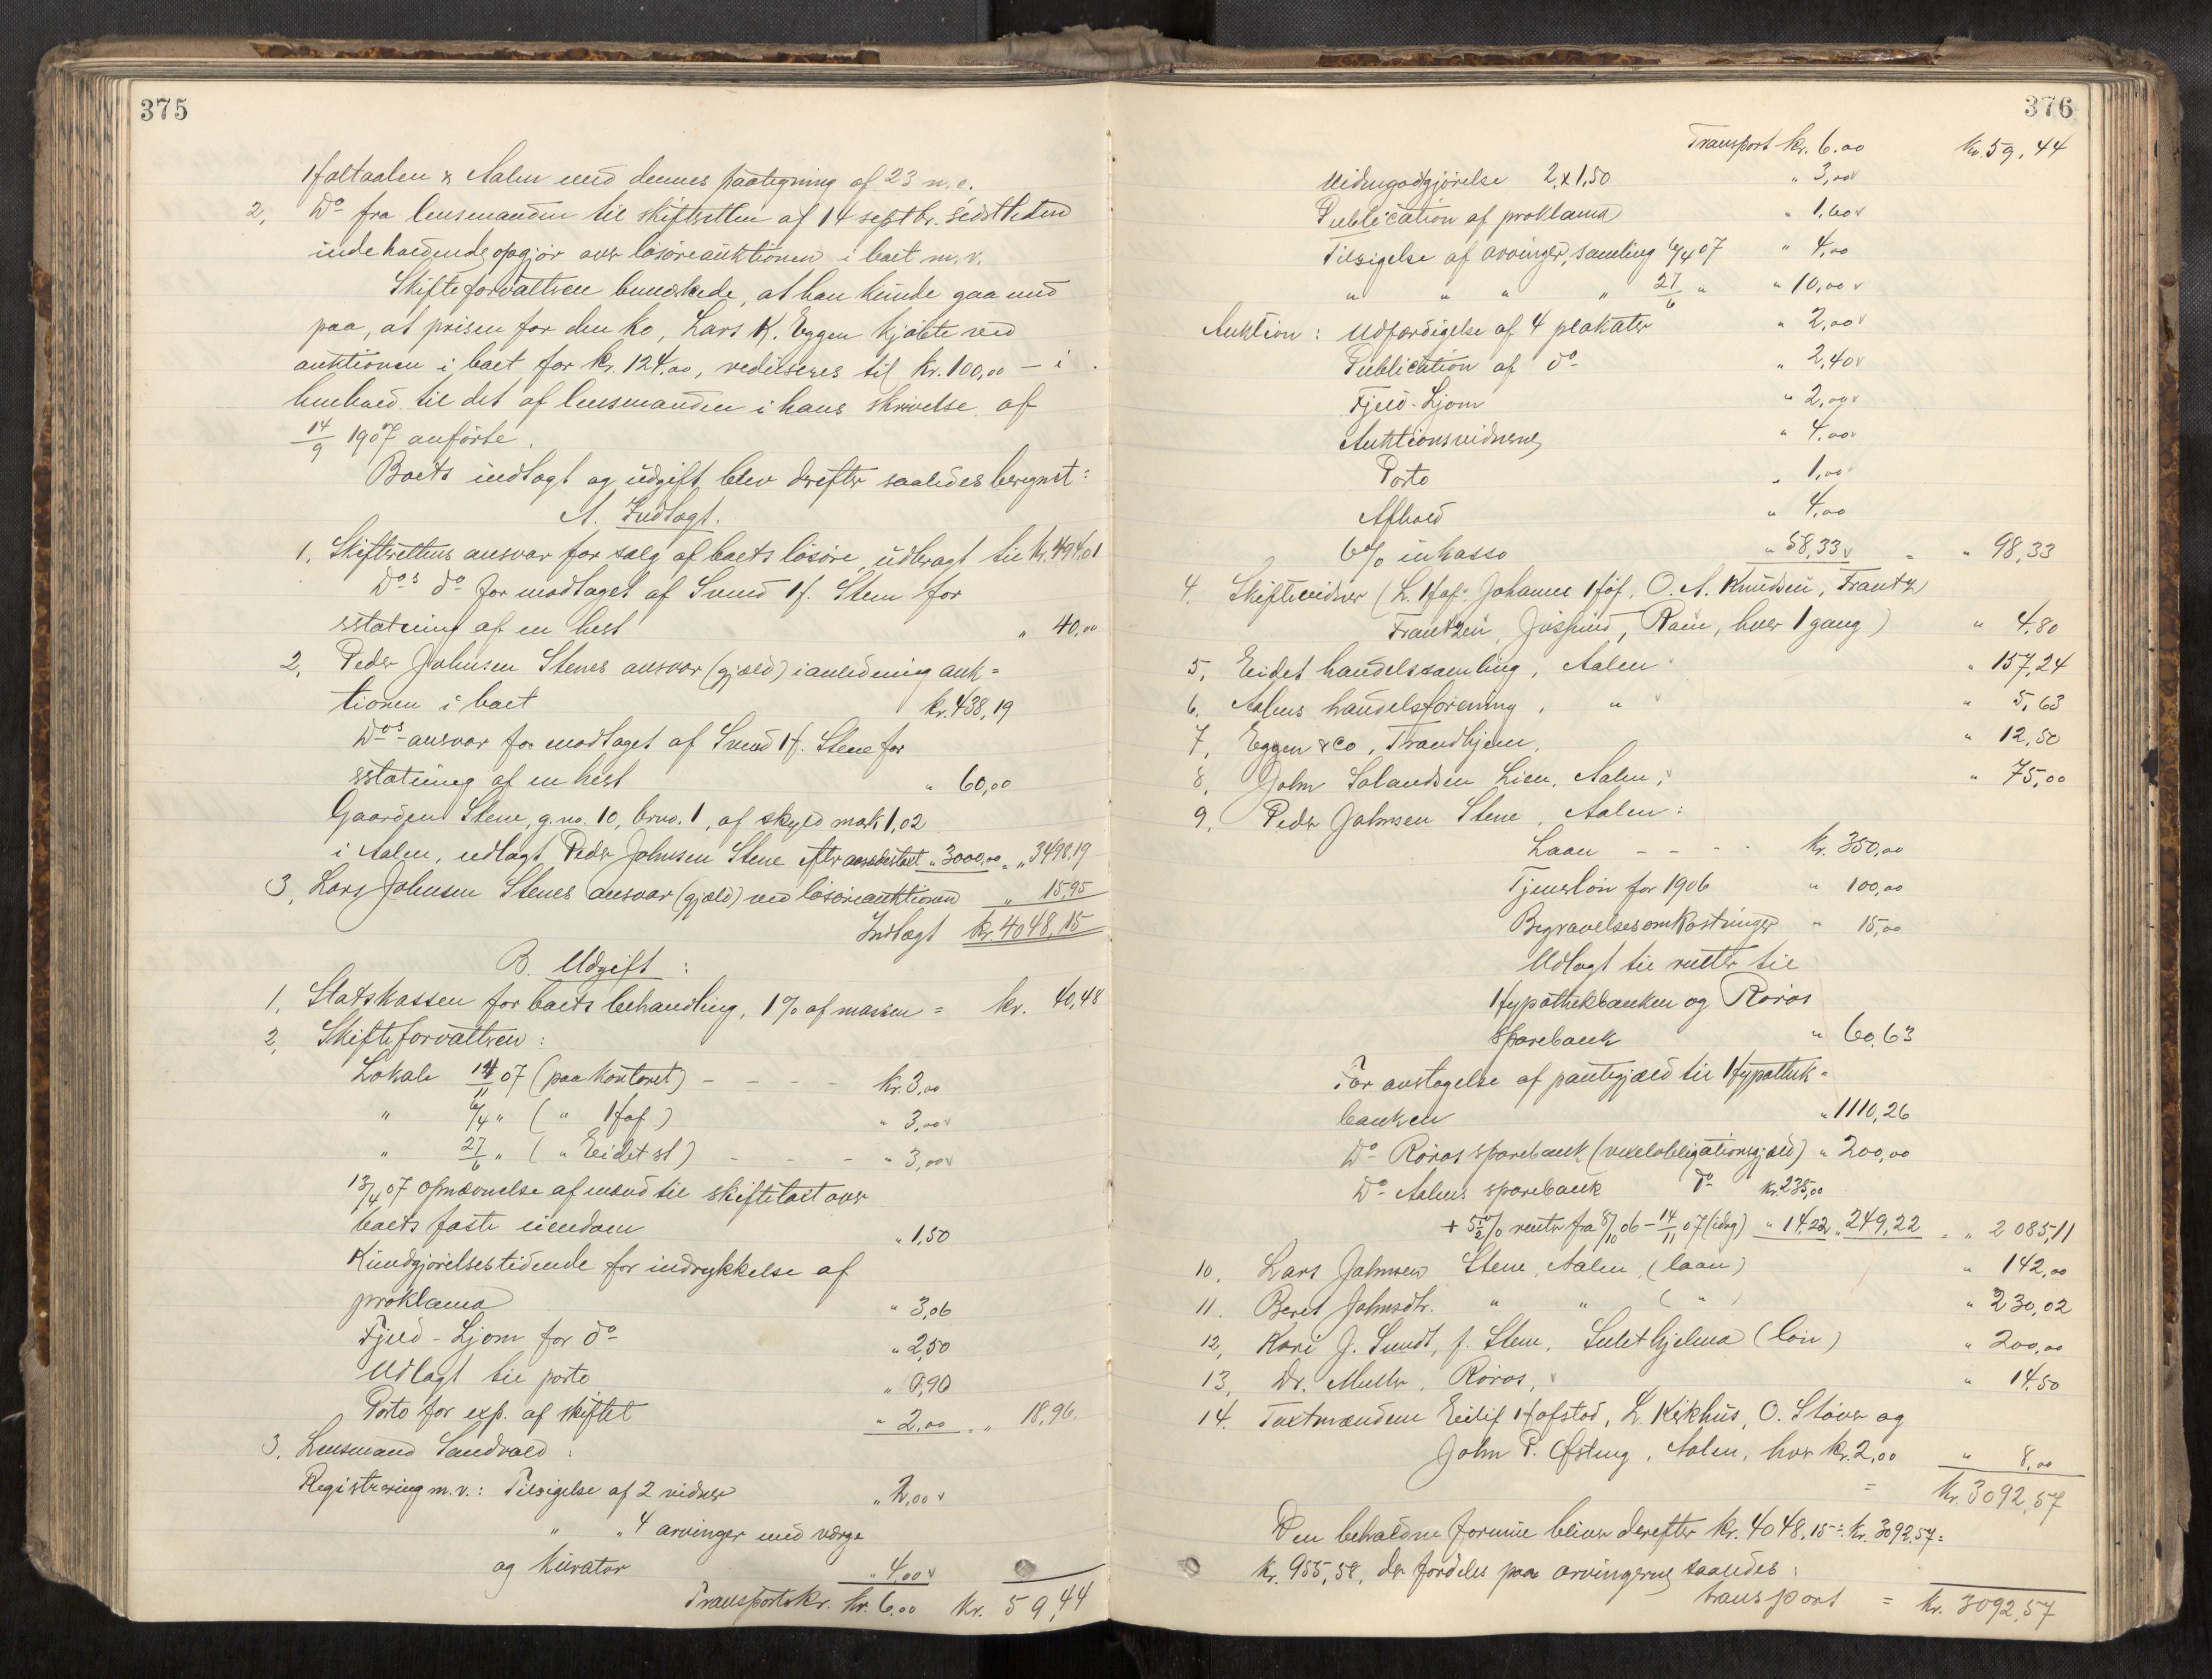 375
Holtaalen & Aalen med dennes paategning af 23 n. e.
2, Do fra lensmanden til skifteretten af 14 septbr. sidstleden
indeholdende opgjør over løsøreauktionen i boet m. v.
Skifteforvalteren bemerkede, at han kunde gaa med
paa, at prisen for den ko, Lars K. Eggen kjøbte ved
auktionen i boet for kr. 124.00, reduseres til kr. 100,00 – i
henhold til det af lensmanden i hans skrivelse af
14/9 1907 anførte.
Boets indtægt og udgift blev derefter saaledes beregnet:
A. Indtægt.
1, Skifterettens ansvar for salg af boets løsøre, udbragt til kr. 494,01
Dos do for modtaget af Svend H. Stene for
erstatning af en hest " 40,00
2, Peder Johnsen Stenes ansvar (gjæld) i anledning auk=
tionen i boet kr. 438,19
Dos ansvar for modtaget af Svend H. Stene for
erstatning af en hest " 60,00
Gaarden Stene, g.no. 10, brno. 1, af skyld mark 1,02
i Aalen, udlagt Peder Johnsen Stene efter " 3000,00 = " 3498.19
3, Lars Johnsen Stenes ansvar (gjæld) ved løsøreauktionen " 15,95
Indtægt kr. 4048,15
B. Udgift:
1, Statskassen for boets behandling, 1% af massen = kr. 40,48
2, Skifteforvalteren:
Lokale 14/11 07 (paa kontoret) - - - - kr. 3,00
" 6/4 " ( " Hof ) " 3,00
" 27/6 " ( " Eidet st) - - - " 3,00
13/4 07 Opnævnelse af mænd til skiftetaxt over
boets faste eiendom " 1,50
Kundgjørelsestidende for indrykkelse af
proklama " 3,06
Fjeld-Ljom for do " 2,50
Udlagt til porto " 0,90
Porto for exp. af skiftet " 2,00 = " 18,96.
3, Lensmand Sandvold:
Registrering m. v.: Tilsigelse af 2 vidner " 2,00
" " 4 arvinger med værge
og kurator " 4,00
Transport kr. kr. 6,00 kr. 59,44
376
Transport kr. 6.00 kr. 59,44
Vidnegodtgjørelse 2 x 1,50 " 3,00
Publication af proklama " 1,60
Tilsigelse af arvinger, samling 6/4 07 " 4,00
" " " " 27/6 " " 10,00
Auktion: Udfærdigelse af 4 plakater " 2,00
Publication af do " 2,40
Fjeld-Ljom " 2,00
Auktionsvidnerne " 4,00
Porto " 1,00
Afhold " 4,00
6% inkasso " 58,33 = " 98,33
4. Skiftevidner (L. Hof, Johannes Hof, O. A. Knudsen, Frantz
Frantzen, Jispind, Ram, hver 1 gang) " 4,80
5, Eidet handelssamling, Aalen " 157,24
6. Aalens handelsforening, " " 5,63
7, Eggen & Co, Trondhjem, " 12,50
8, John Salandsen Lien, Aalen, " 75,00
9, Peder Johnsen Stene, Aalen:
Laan - - - - kr. 350,00
Tjenerløn for 1906 " 100,00
Begravelsesomkostninger " 15,00
Udlagt til renter til
Hypothekbanken og Røros
sparebank " 60,63
For overtagelse af pantegjæld til Hypothek=
banken " 1110,26
Do Røros sparebank (vexelobligationsgjæld) " 200,00
Do Aalens sparebank do kr. 235,00
+ 5 1/2 % renter fra 8/10 06 – 14/11 07 (idag) " 14,22 " 249,22 = " 2085,11
10, Lars Johnsen Stene, Aalen, (laan) " 142,00
11. Beret Johnsdtr. " " ( " ) " 230,02
12, Kari J. Sundt, f. Stene, Sulithjelma (løn) " 200,00
13, Dr. Muller, Røros, " 14,50
14. Taxtmændene Eilif Hofstad, L. Kirkhus, O. Støver og
John P. Østeng, Aalen, hver kr. 2,00 " 8,00
= kr. 3092,57
Den beholdne formue bliver derefter kr. 4048,15 ÷ kr. 3092,57 =
kr. 955,58, der fordeles paa arvingerne saaledes:
transport = kr. 3092,57